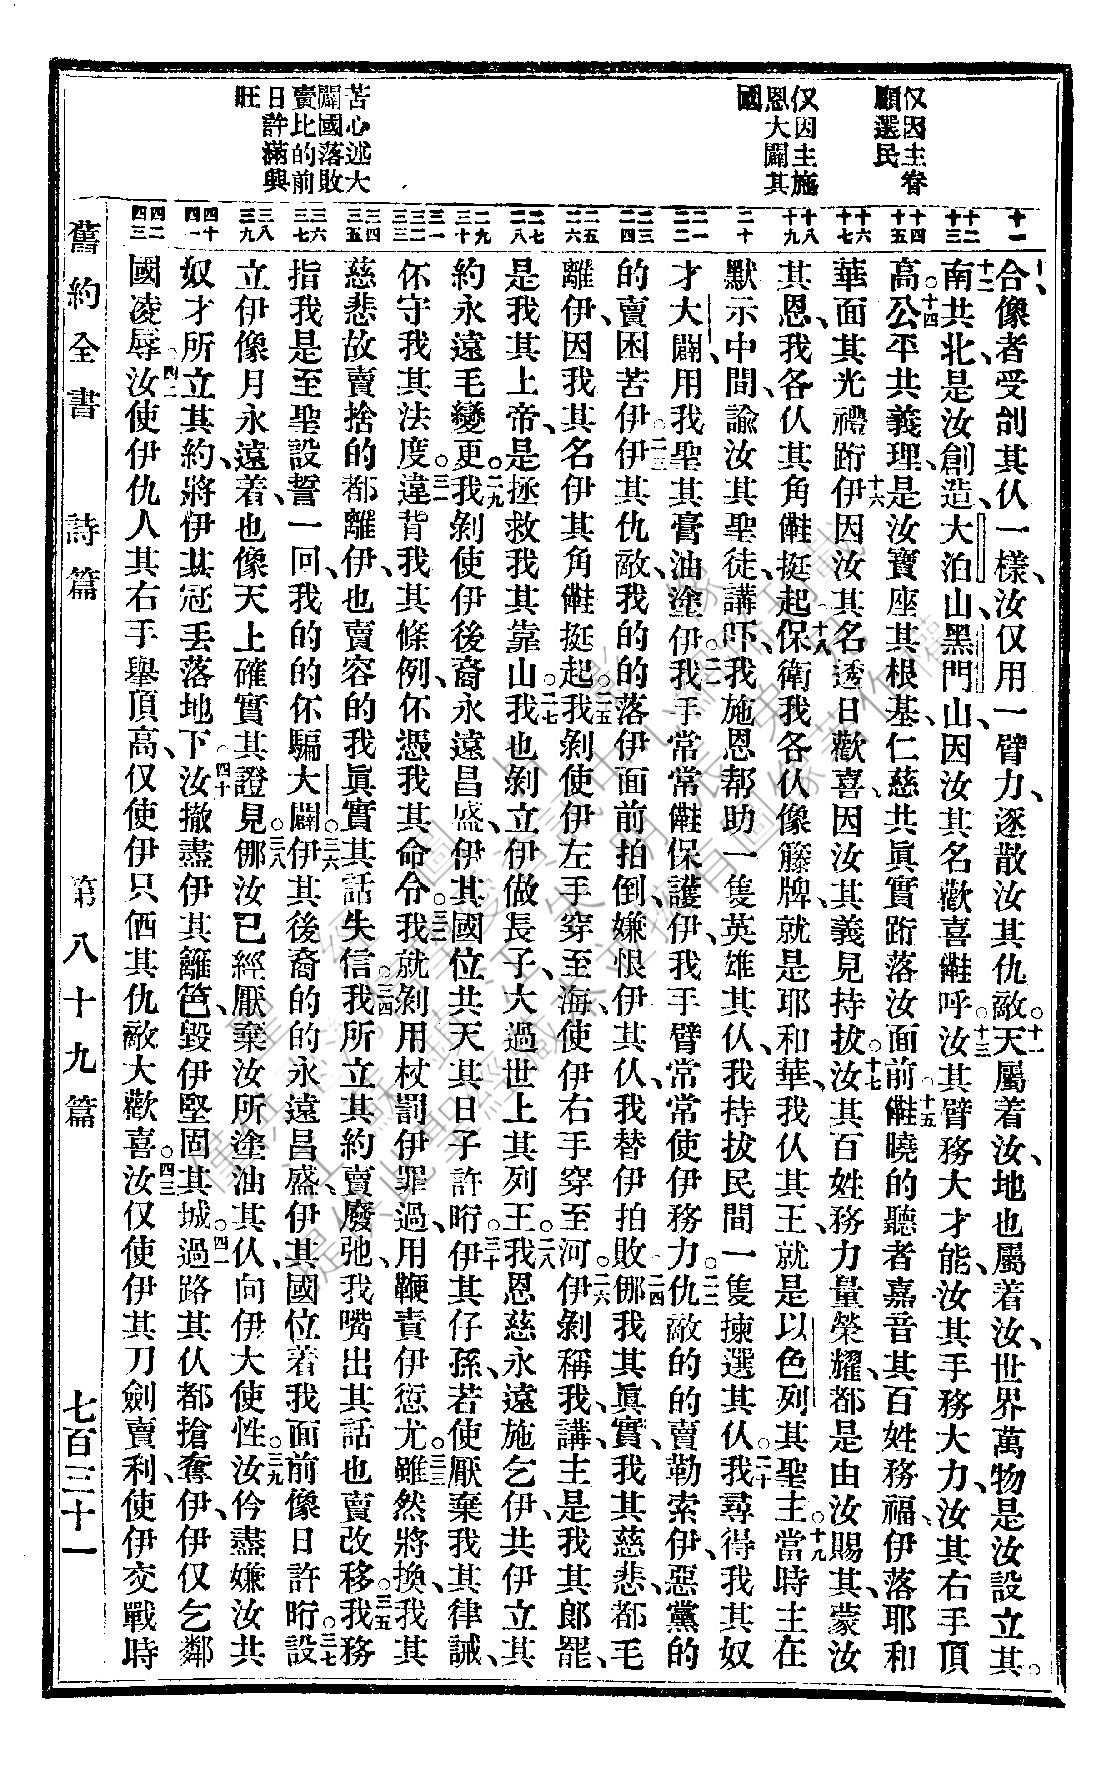 仅因主眷
顧選民
仅因主施
恩大闢其
國
苦心述大
闢國落敗
賣比的前
日許滿興
旺
十一
十二
十三
十四
十五
十六
十七
十八
十九
二十
二一
二二
二三
二四
二五
二六
二七
二八
二九
三十
三一
三二
三三
三四
三五
三六
三七
三八
三九
四十
四一
四二
四三
合像者受刣其仈一樣、汝仅用一臂力、逐散汝其仇敵。十一天屬着汝、地也屬着汝、世界萬物是汝設立其。
十二南共北、是汝創造、大泊山、黑門山、因汝其名歡喜㑚呼。十三汝其臂務大才能、汝其手務大力、汝其右手頂
高。十四公平共義理、是汝寶座其根基、仁慈共眞實跨落汝面前。十五㑚曉的聽者嘉音其百姓務福、伊落耶和
華面其光禮跨。十六伊因汝其名透日歡喜、因汝其義見持拔。十七汝其百姓務力量榮耀、都是由汝賜其、蒙汝
其恩、我各仈其角㑚挺起。十八保衛我各仈像籐牌、就是耶和華、我仈其王、就是以色列其聖主。十九當時主在
默示中間、諭汝其聖徒、講吓、我施恩帮助一隻英雄其仈、我持拔民間一隻揀選其仈。二十我尋得我其奴
才大闢、用我聖其膏油塗伊。二一我手常常㑚保護伊、我手臂常常使伊務力。二二仇敵的的賣勒索伊、惡黨的
的賣困苦伊。二三伊其仇敵、我的的落伊面前拍倒、嫌恨伊其仈、我替伊拍敗。二四㑚我其眞實、我其慈悲、都毛
離伊、因我其名、伊其角㑚挺起。二五我剝使伊左手穿至海、使伊右手穿至河。二六伊剝稱我、講、主是我其郎罷、
是我其上帝、是拯救我其靠山。二七我也剝立伊做長子、大過世上其列王。二八我恩慈永遠施乞伊、共伊立其
約永遠毛變更。二九我剝使伊後裔永遠昌盛、伊其國位共天其日子許𣍐。三十伊其仔孫、若使厭棄我其律誡、
伓守我其法度。三一違背我其條例、伓憑我其命令。三二我就剝用杖罰伊罪過、用鞭責伊愆尤。三三雖然將換、我其
慈悲故賣捨的都離伊、也賣容的我眞實其話失信。三四我所立其約賣廢弛、我嘴出其話也賣改移。三五我務
指我是至聖設誓一回、我的的伓騙大闢。三六伊其後裔的的永遠昌盛、伊其國位着我面前、像日許𣍐設。三七
立伊像月永遠着、也像天上確實其證見。三八㑚汝已經厭棄汝所塗油其仈、向伊大使性。三九汝伓盡嫌汝共
奴才所立其約、將伊其冠丟落地下。四十汝撤盡伊其籬笆、毀伊堅固其城。四一過路其仈都搶奪伊、伊仅乞鄰
國凌辱。四二汝使伊仇人其右手舉頂高、仅使伊只㑚其仇敵大歡喜。四三汝仅使伊其刀劍賣利、使伊交戰時
舊約全書　詩篇　第八十九篇　七百三十一